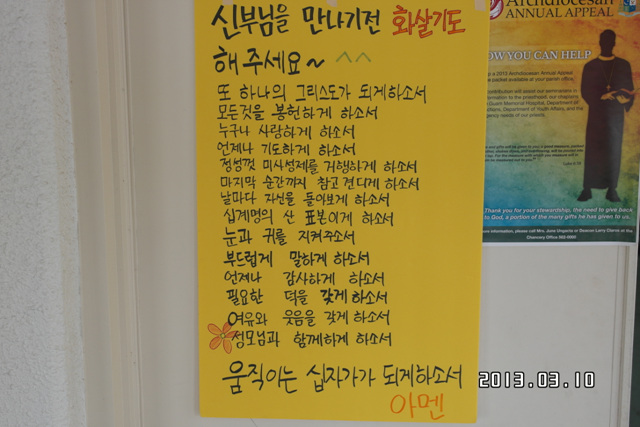 신부님을 만나기전 화살기도
해 주세요~ ^^
또 하나의 그리스도가 되게하소서
모든것을 봉헌하게 하소서
누구나 사랑하게 하소서
언제나 기도하게 하소서
정성껏 미사성제를 거행하게 하소서
마지막 순간까지 참고 견디게 하소서
날마다 자신을 돌아보게 하소서
십계명의 산 표본이게 하소서
눈과 귀를 지켜주소서
부드럽게 말하게 하소서
언제나 감사하게 하소서
필요한 덕을 갖게 하소서
여유와 웃음을 갖게 하소서
성모님과 함께하게 하소서
움직이는 십자가가 되게하소서
아멘
Archdiocesan
ANNUAL APPEAL
OW YOU CAN HELP
Thank you for your stewardship, the need to give back
to God, a portion of the many gifts he has given to us.
2013.03.10